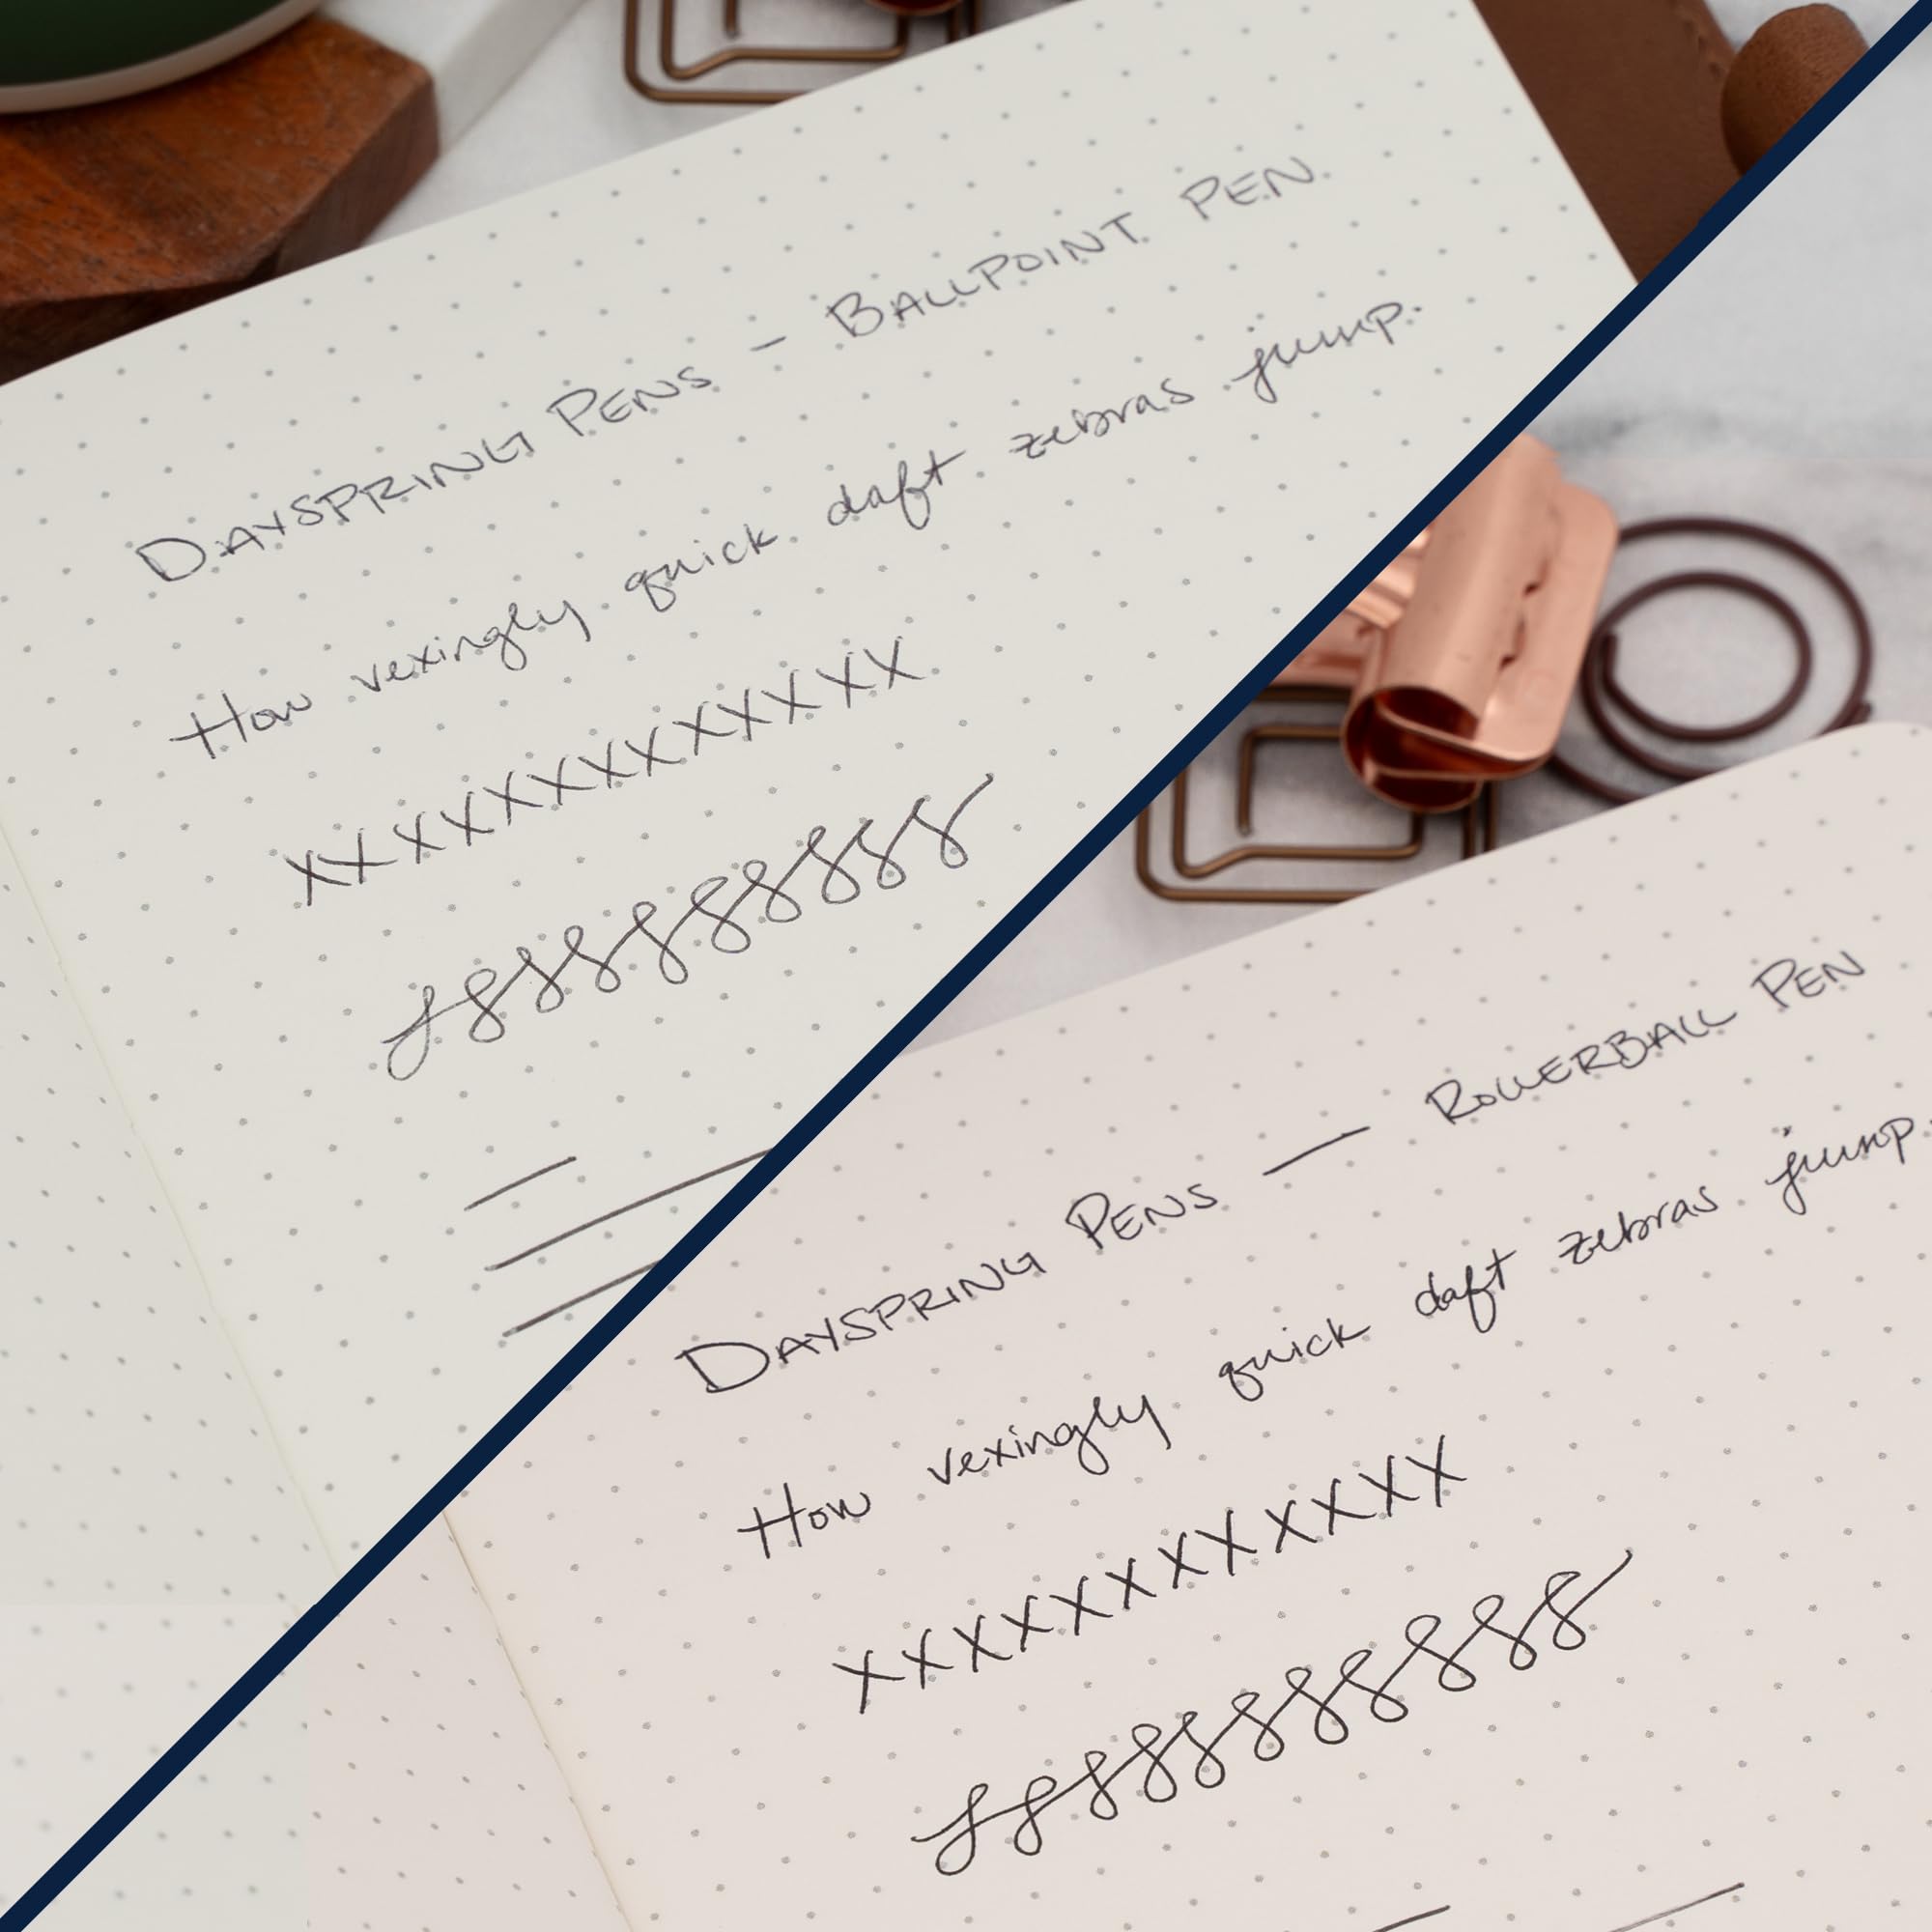 DAYSPRING PENS – BALLPOINT PEN
How vexingly quick daft zebras jump.
XXXXXXXXXXXX
DAYSPRING PENS — ROLLERBALL PEN
How vexingly quick daft zebras jump.
XXXXXXXXXXXX